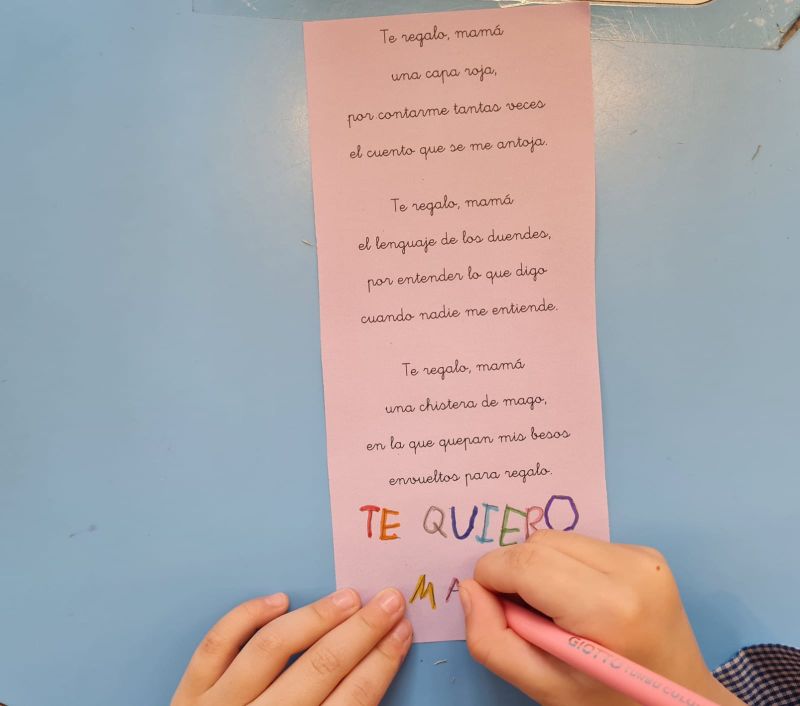 Te regalo, mamá
una capa roja,
por contarme tantas veces
el cuento que se me antoja.
Te regalo, mamá
el lenguaje de los duendes,
por entender lo que digo
cuando nadie me entiende.
Te regalo, mamá
una chistera de mago,
en la que quepan mis besos
envueltos para regalo.
TE QUIERO
MA
GIOTTO TURBO COLOR